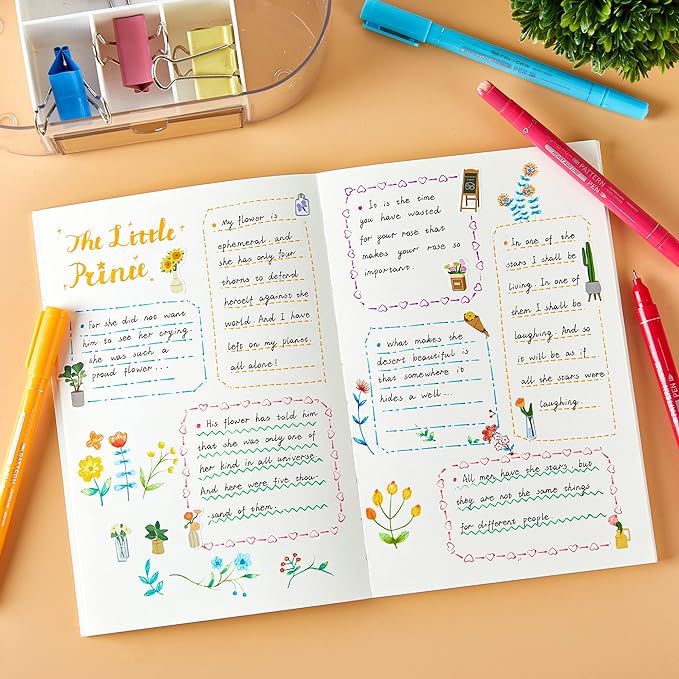 The Little
Prince
My flower is
ephemeral, and
she has only four
thorns to defend
herself against the
world. And I have
left on my planet,
all alone!
For she did not want
him to see her crying.
she was such a
proud flower...
His flower has told him
that she was only one of
her kind in all universe.
And here were five thou-
sand of them.
It is the time
you have wasted
for your rose that
makes your rose so
important.
In one of the
stars I shall be
living. In one of
them I shall be
laughing. And so
it will be as if
all the stars were
laughing
what makes the
desert beautiful is
that somewhere it
hides a well...
All men have the stars, but
they are not the same things
for different people.
PATTERN
PATTERN
PEN